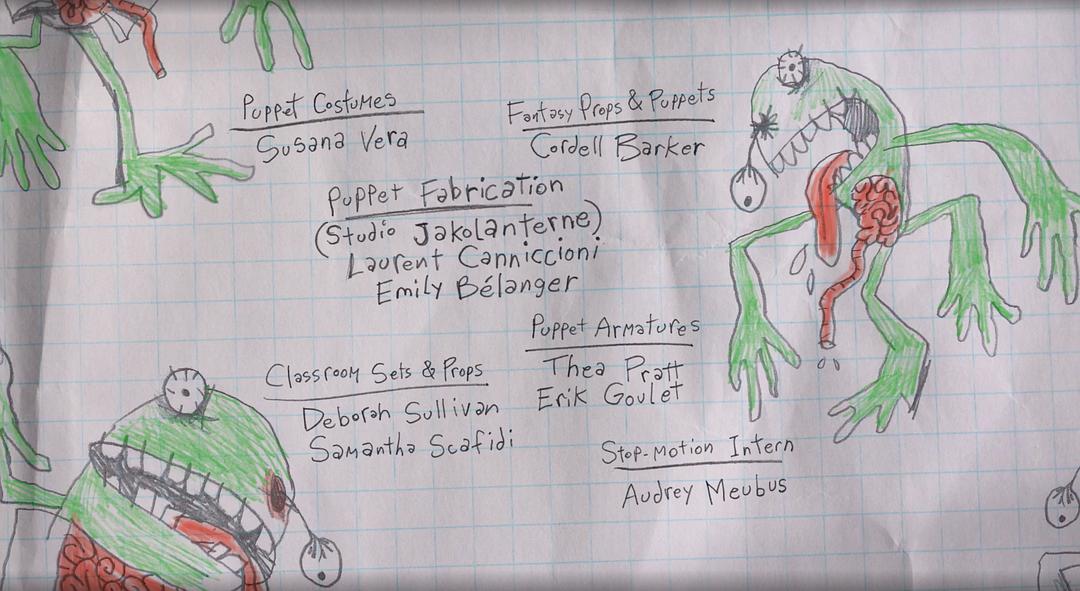 Puppet Costumes
Susana Vera
Fantasy Props & Puppets
Cordell Barker
Puppet Fabrication
(Studio Jakolanterne)
Laurent Canniccioni
Emily Bélanger
Puppet Armatures
Thea Pratt
Erik Goulet
Classroom Sets & Props
Deborah Sullivan
Samantha Scafidi
Stop-Motion Intern
Audrey Meubus